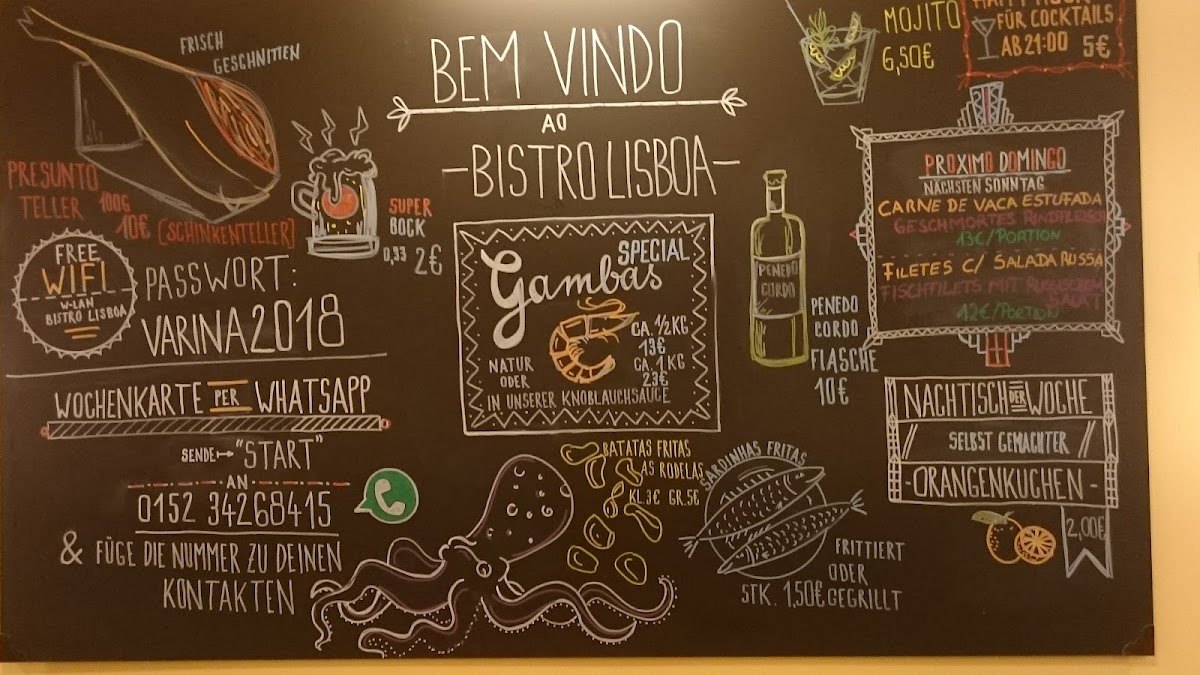 FRISCH
GESCHNITTEN
PRESUNTO
TELLER 100G
10€ [SCHINKENTELLER]
FREE
WIFI
W-LAN
BISTRO LISBOA
PASSWORT:
VARINA2018
WOCHENKARTE PER WHATSAPP
SENDE "START"
AN
0152 34268415
& FÜGE DIE NUMMER ZU DEINEN
KONTAKTEN
SUPER
BOCK
0,33 2€
BEM VINDO
AO
-BISTRO LISBOA-
SPECIAL
Gambas
CA. ½ KG
13€
CA. 1 KG
23€
NATUR
ODER
IN UNSERER KNOBLAUCHSAUCE
BATATAS FRITAS
AS RODELAS
KL. 3€ GR. 5€
PENEDO
GORDO
PENEDO
GORDO
FLASCHE
10€
SARDINHAS FRITAS
FRITTIERT
ODER
STK. 1,50€ GEGRILLT
MOJITO
6,50€
HAPPY HOUR
FÜR COCKTAILS
AB 21:00 5€
PROXIMO DOMINGO
NÄCHSTEN SONNTAG
CARNE DE VACA ESTUFADA
GESCHMORTES RINDFLEISCH
13€/PORTION
FILETES C/ SALADA RUSSA
FISCHFILETS MIT RUSSISCHEM
SALAT
12€/PORTION
NACHTISCH DER WOCHE
SELBST GEMACHTER
-ORANGENKUCHEN-
2,00€